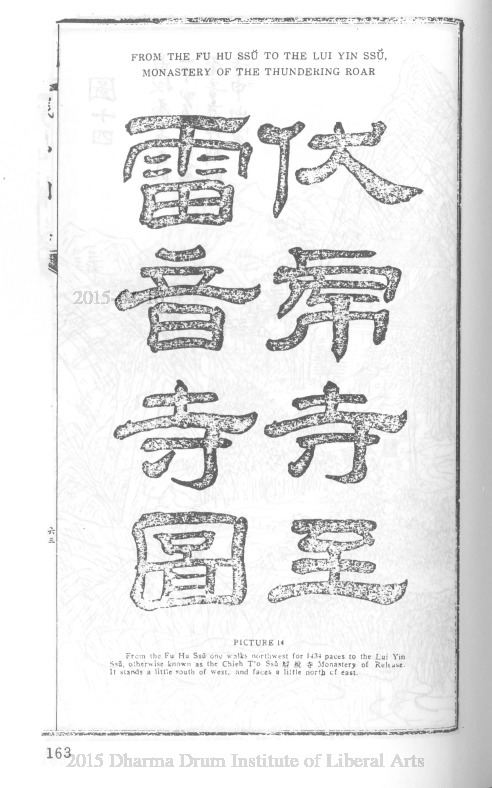 FROM THE FU HU SSŬ TO THE LUI YIN SSŬ,
MONASTERY OF THE THUNDERING ROAR
伏虎寺至
雷音寺圖
PICTURE 14
From the Fu Hu Ssŭ one walks northwest for 1434 paces to the Lui Yin
Ssŭ, otherwise known as the Chieh T'o Ssŭ 解脫寺 Monastery of Release.
It stands a little south of west, and faces a little north of east.
163
2015 Dharma Drum Institute of Liberal Arts